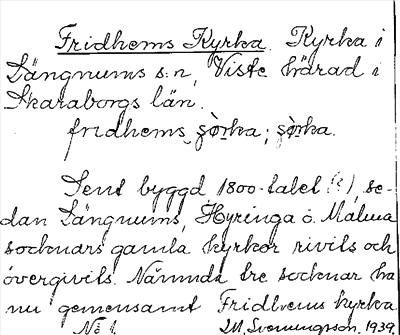 Fridhems Kyrka. Kyrka i
Längnums s:n, Viste härad i
Skaraborgs län.
fridhems ʂòrka; ʂòrka.
Sent byggd 1800-talet (?), se-
dan Längnums, Hyringa o. Malma
socknars gamla kyrkor rivits och
övergivits. Nämnda tre socknar ha
nu gemensamt Fridhems kyrka
No 1. M. Svenningson. 1939.